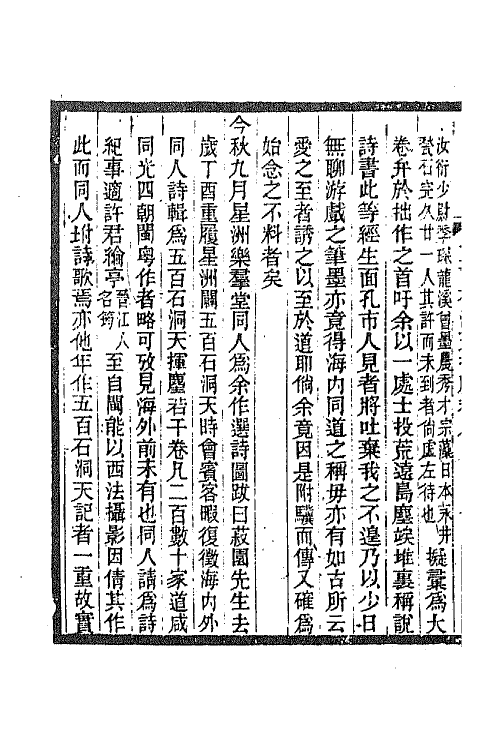 汝衍少尉季琛龍溪曾墨農秀才宗藻日本永井
石完久廿一人其許而未到者尚虛左待也　擬彙爲大
卷弁於拙作之首吁余以一處士投荒遠島塵埃堆裏稱說
詩書此等經生面孔市人見者將吐棄我之不遑乃以少日
無聊游戲之筆墨亦竟得海内同道之稱毋亦有如古所云
愛之至者誘之以至於道耶倘余竟因是附驥而傳又確爲
始念之不料者矣
今秋九月星洲樂羣堂同人爲余作選詩圖跋曰菽園先生去
歲丁酉重履星洲闢五百石洞天時會賓客暇復徵海内外
同人詩輯爲五百石洞天揮麈若干卷凡二百數十家道咸
同光四朝閩粤作者略可攷見海外前未有也同人請爲詩
紀事適許君綸亭晉江人名筠至自閩能以西法攝影因倩其作
此而同人坿詩歌焉亦他年作五百石洞天記者一重故實